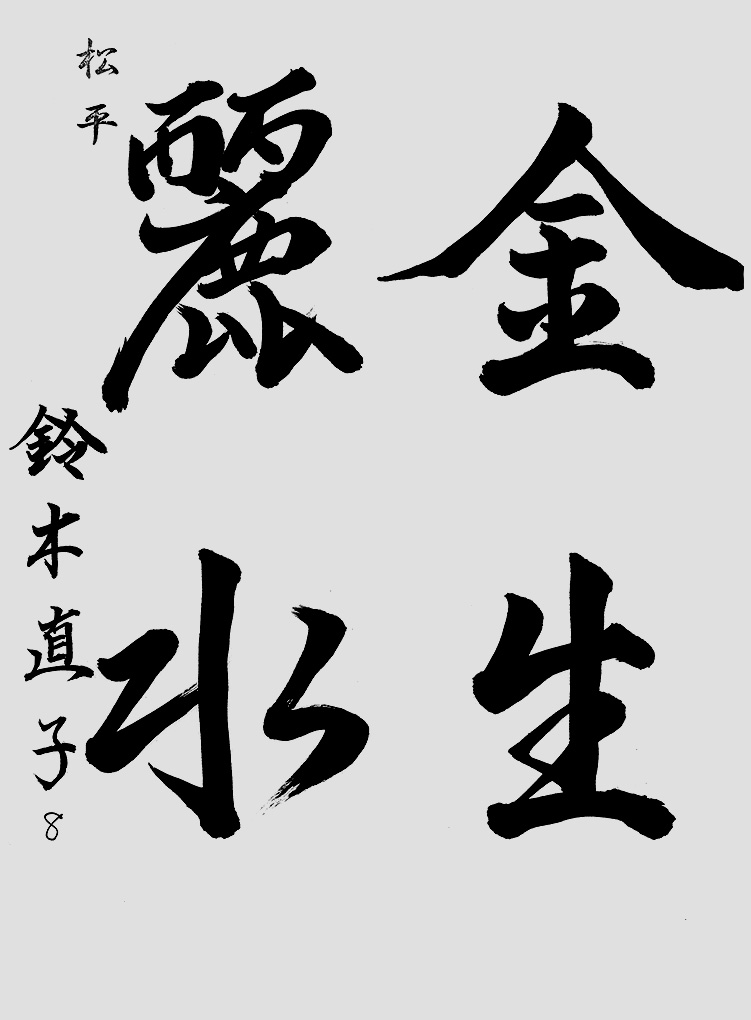 金生
麗水
松平
鈴木直子8